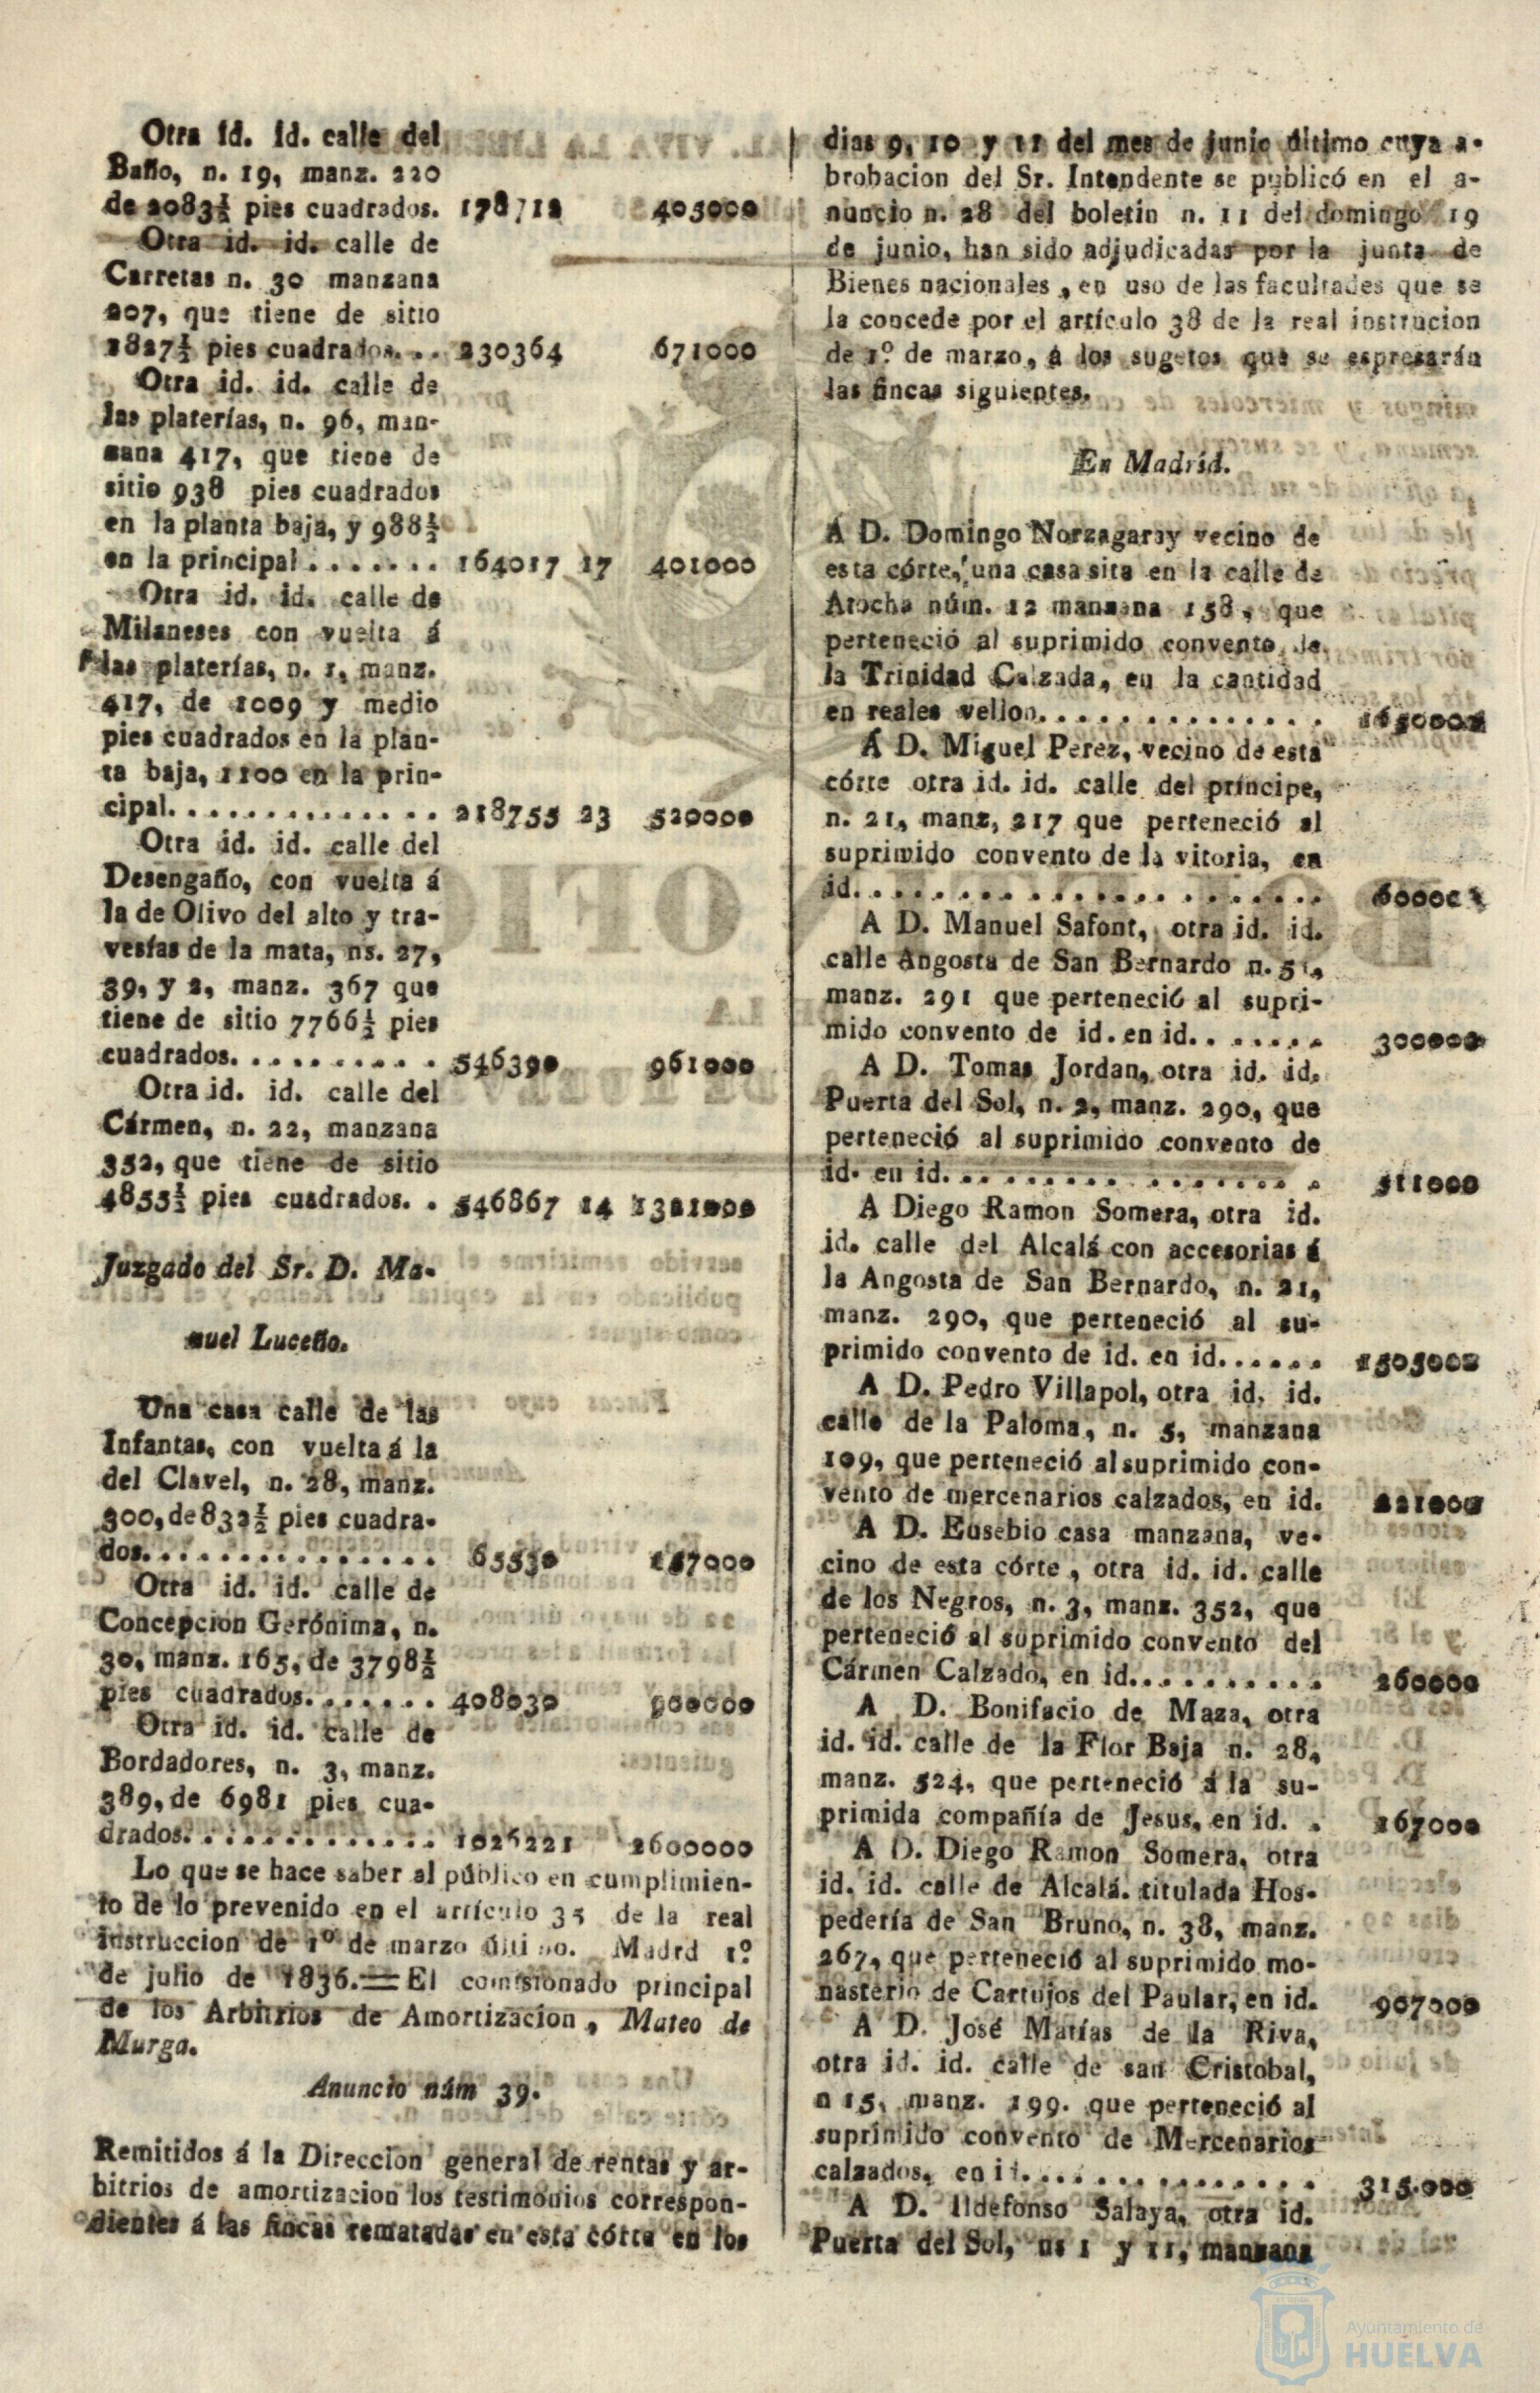 Otra id. id. calle del
Baño, n. 19, manz. 220
de 2083½ pies cuadrados. 178712 405000
Otra id. id. calle de
Carretas n. 30 manzana
207, que tiene de sitio
1827½ pies cuadrados... 230364 671000
Otra id. id. calle de
las platerías, n. 96, man-
zana 417, que tiene de
sitio 938 pies cuadrados
en la planta baja, y 988½
en la principal....... 164017 17 401000
Otra id. id. calle de
Milaneses con vuelta á
las platerías, n. 1, manz.
417, de 1009 y medio
pies cuadrados en la plan-
ta baja, 1100 en la prin-
cipal.............. 218755 23 520000
Otra id. id. calle del
Desengaño, con vuelta á
la de Olivo del alto y tra-
vesías de la mata, ns. 27,
39, y 2, manz. 367 que
tiene de sitio 7766½ pies
cuadrados.......... 546390 961000
Otra id. id. calle del
Cármen, n. 22, manzana
352, que tiene de sitio
4855½ pies cuadrados. . 546867 14 1321000
Juzgado del Sr. D. Ma-
nuel Luceño.
Una casa calle de las
Infantas, con vuelta á la
del Clavel, n. 28, manz.
300, de 832½ pies cuadra-
dos............... 65530 157000
Otra id. id. calle de
Concepcion Gerónima, n.
30, manz. 165, de 3798½
pies cuadrados....... 408030 900000
Otra id. id. calle de
Bordadores, n. 3, manz.
389, de 6981 pies cua-
drados............. 1026221 2600000
Lo que se hace saber al público en cumplimien-
to de lo prevenido en el artículo 35 de la real
instruccion de 1º de marzo último. Madrd 1º.
de julio de 1836.=El comisionado principal
de los Arbitrios de Amortizacion, Mateo de
Murga.
Anuncio núm 39.
Remitidos á la Direccion general de rentas y ar-
bitrios de amortizacion los testimonios correspon-
dientes á las fincas rematadas en esta córte en los
dias 9, 10 y 11 del mes de junio último cuya a-
brobacion del Sr. Intendente se publicó en el a-
nuncio n. 28 del boletin n. 11 del domingo 19
de junio, han sido adjudicadas por la junta de
Bienes nacionales, en uso de las facultades que se
la concede por el artículo 38 de la real instrucion
de 1º. de marzo, á los sugetos que se espresarán
las fincas siguientes.
En Madrid.
Á D. Domingo Norzagaray vecino de
esta córte, una casa sita en la calle de
Atocha núm. 12 manzana 158, que
perteneció al suprimido convento de
la Trinidad Calzada, en la cantidad
en reales vellon.............. 1650000
Á D. Miguel Perez, vecino de esta
córte otra id. id. calle del príncipe,
n. 21, manz, 217 que perteneció al
suprimido convento de la vitoria, en
id....................... 60000
A D. Manuel Safont, otra id. id.
calle Angosta de San Bernardo n. 51,
manz. 291 que perteneció al supri-
mido convento de id. en id....... 300000
A D. Tomas Jordan, otra id. id.
Puerta del Sol, n. 2, manz. 290, que
perteneció al suprimido convento de
id. en id.................. 511000
A Diego Ramon Somera, otra id.
id. calle del Alcalá con accesorias á
la Angosta de San Bernardo, n. 21,
manz. 290, que perteneció al su-
primido convento de id. en id...... 1505000
A D. Pedro Villapol, otra id. id.
calle de la Paloma, n. 5, manzana
109, que perteneció al suprimido con-
vento de mercenarios calzados, en id. 221000
A D. Eusebio casa manzana, ve-
cino de esta córte, otra id. id. calle
de los Negros, n. 3, manz. 352, que
perteneció al suprimido convento del
Cármen Calzado, en id.......... 260000
A D. Bonifacio de Maza, otra
id. id. calle de la Flor Baja n. 28,
manz. 524, que perteneció á la su-
primida compañía de Jesus, en id. . 267000
A D. Diego Ramon Somera, otra
id. id. calle de Alcalá. titulada Hos-
pedería de San Bruno, n. 38, manz.
267, que perteneció al suprimido mo-
nasterio de Cartujos del Paular, en id. 907000
A D. José Matías de la Riva,
otra id. id. calle de san Cristobal,
n 15, manz. 199. que perteneció al
suprimido convento de Mercenarios
calzados, en id............... 315.000
A D. Ildefonso Salaya, otra id.
Puerta del Sol, ns 1 y 11, manzana
Ayuntamiento de
HUELVA